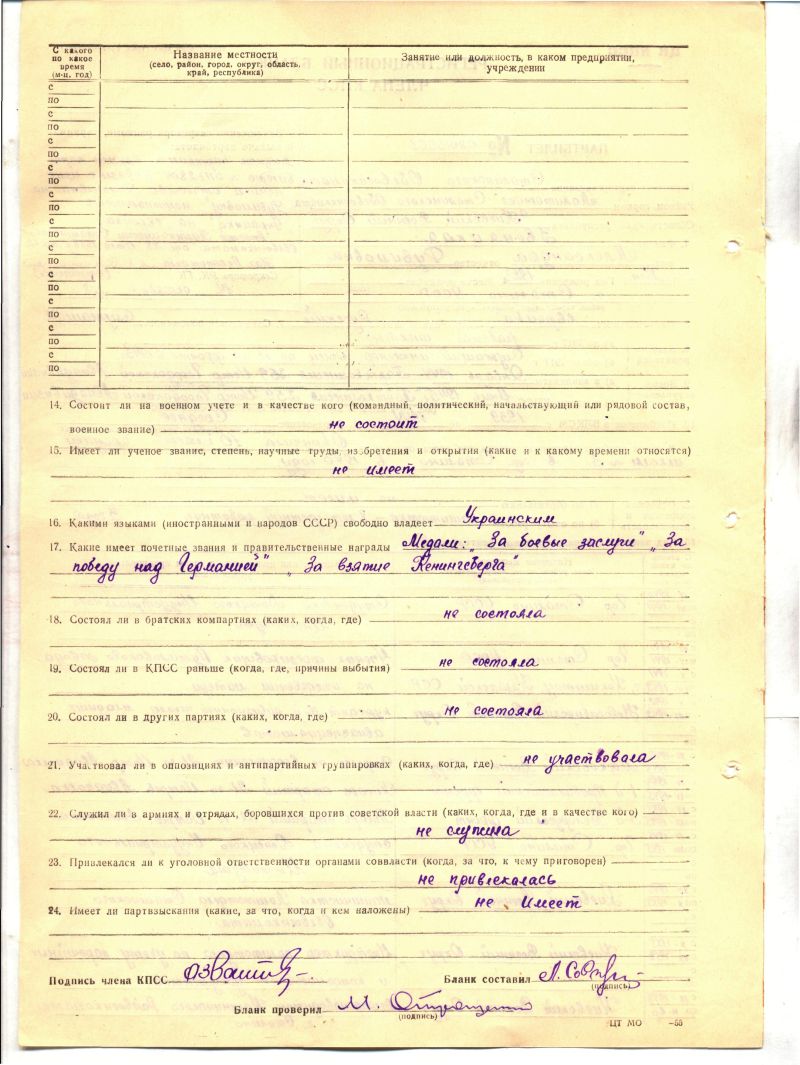 С какого
по какое
время
(м-ц, год)
Название местности
(село, район, город, округ, область,
край, республика)
Занятие или должность, в каком предприятии,
учреждении
с
по
с
по
с
по
с
по
с
по
с
по
с
по
с
по
с
по
с
по
с
по
14. Состоит ли на военном учете и в качестве кого (командный, политический, начальствующий или рядовой состав,
военное звание) не состоит
15. Имеет ли ученое звание, степень, научные труды, изобретения и открытия (какие и к какому времени относятся)
не имеет
16. Какими языками (иностранными и народов СССР) свободно владеет Украинским
17. Какие имеет почетные звания и правительственные награды Медали: „За боевые заслуги" „За
победу над Германией" „За взятие Кенингсберга"
18. Состоял ли в братских компартиях (каких, когда, где) не состояла
19. Состоял ли в КПСС раньше (когда, где, причины выбытия) не состояла
20. Состоял ли в других партиях (каких, когда, где) не состояла
21. Участвовал ли в оппозициях и антипартийных группировках (каких, когда, где) не участвовала
22. Служил ли в армиях и отрядах, боровшихся против советской власти (каких, когда, где и в качестве кого)
не служила
23. Привлекался ли к уголовной ответственности органами соввласти (когда, за что, к чему приговорен)
не привлекалась
24. Имеет ли партвзыскания (какие, за что, когда и кем наложены) не имеет
Подпись члена КПСС Бланк составил
(подпись)
Бланк проверил М.
(подпись)
ЦТ МО —55